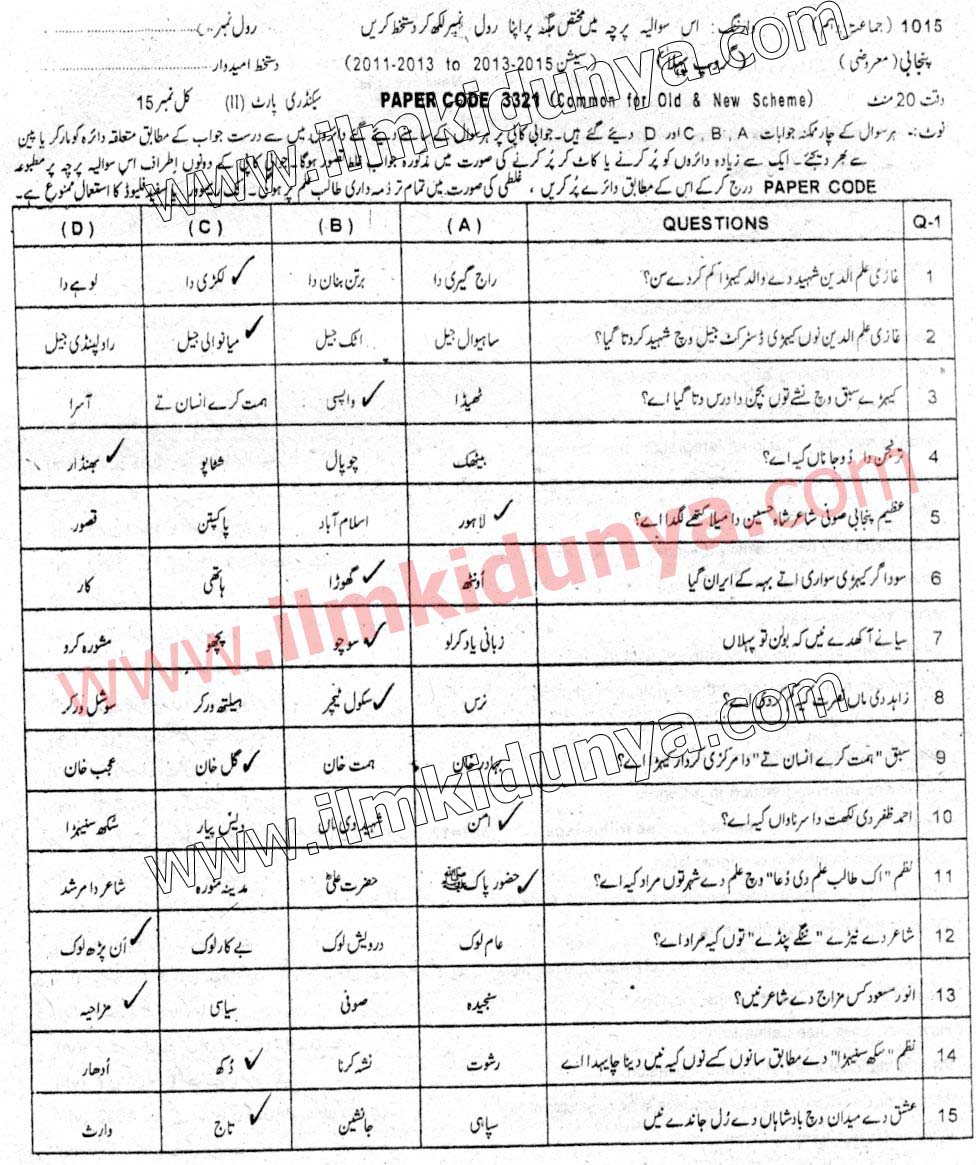 1015 (جماعت دہم) وارننگ: اس سوالیہ پرچہ میں مختص جگہ پر اپنا رول نمبر لکھ کر دستخط کریں رول نمبر
پنجابی (معروضی) (گروپ پہلا) (سیشن 2013-2015 to 2011-2013) دستخط امیدوار
وقت 20 منٹ PAPER CODE 3321 (Common for Old & New Scheme) سیکنڈری پارٹ (II) کل نمبر 15
نوٹ:- ہر سوال کے چار ممکنہ جوابات A، B، C اور D دیئے گئے ہیں۔ جوابی کاپی پر ہر سوال کے سامنے دیئے گئے دائروں میں سے درست جواب کے مطابق متعلقہ دائرہ کو مارکر یا پین
سے بھر دیجئے۔ ایک سے زیادہ دائروں کو پُر کرنے یا کاٹ کر پُر کرنے کی صورت میں مذکورہ جواب غلط تصور ہوگا۔ جوابی کاپی کے دونوں اطراف اس سوالیہ پرچہ پر مطبوعہ
PAPER CODE درج کر کے اس کے مطابق دائرے پُر کریں، غلطی کی صورت میں تمام تر ذمہ داری طالب علم پر ہوگی۔ فلیوڈ کا استعمال ممنوع ہے۔
Q-1 QUESTIONS (A) (B) (C) (D)
1 غازی علم الدین شہید دے والد کیہڑا کم کردے سن؟ راج گیری دا برتن بنان دا لکڑی دا لوہے دا
2 غازی علم الدین نوں کیہڑی ڈسٹرکٹ جیل وچ شہید کردتا گیا؟ ساہیوال جیل اٹک جیل میانوالی جیل راولپنڈی جیل
3 کیہڑے سبق وچ نشے توں بچن دا درس دتا گیا اے؟ ٹھیڈا واپسی ہمت کرے انسان تے آسرا
4 ترنجن دا دوجا ناں کیہ اے؟ بیٹھک چوپال شٹاپو بھنڈار
5 عظیم پنجابی صوفی شاعر شاہ حسین دا میلا کتھے لگدا اے؟ لاہور اسلام آباد پاکپتن قصور
6 سوداگر کیہڑی سواری اتے بہہ کے ایران گیا اونٹھ گھوڑا ہاتھی کار
7 سیانے آکھدے نیں کہ بولن تو پہلاں زبانی یاد کر لو سوچو پچھو مشورہ کرو
8 زاہد دی ماں نصرت کیہ کردی اے؟ نرس سکول ٹیچر ہیلتھ ورکر سوشل ورکر
9 سبق "ہمت کرے انسان تے" دا مرکزی کردار کیہڑا اے؟ بہادر خان ہمت خان گل خان عجب خان
10 احمد ظفر دی لکھت دا سرناواں کیہ اے؟ امن شہید دی ماں دیس پیار سکھ سنیہڑا
11 نظم "اک طالب علم دی دُعا" وچ علم دے شہر توں مراد کیہ اے؟ حضور پاک ﷺ حضرت علیؓ مدینہ منورہ شاعر دا مرشد
12 شاعر دے نیڑے "ننگے پنڈے" توں کیہ مراد اے؟ عام لوک درویش لوک بے کار لوک اَن پڑھ لوک
13 انور مسعود کس مزاج دے شاعر نیں؟ سنجیدہ صوفی سیاسی مزاحیہ
14 نظم "سکھ سنیہڑا" دے مطابق سانوں کسے نوں کیہ نیں دینا چاہیدا اے رشوت نشہ کرنا دُکھ اُدھار
15 عشق دے میدان وچ بادشاہاں دے رُل جاندے نیں سپاہی جانشین تاج وارث
www.ilmkidunya.com
www.ilmkidunya.com
www.ilmkidunya.com